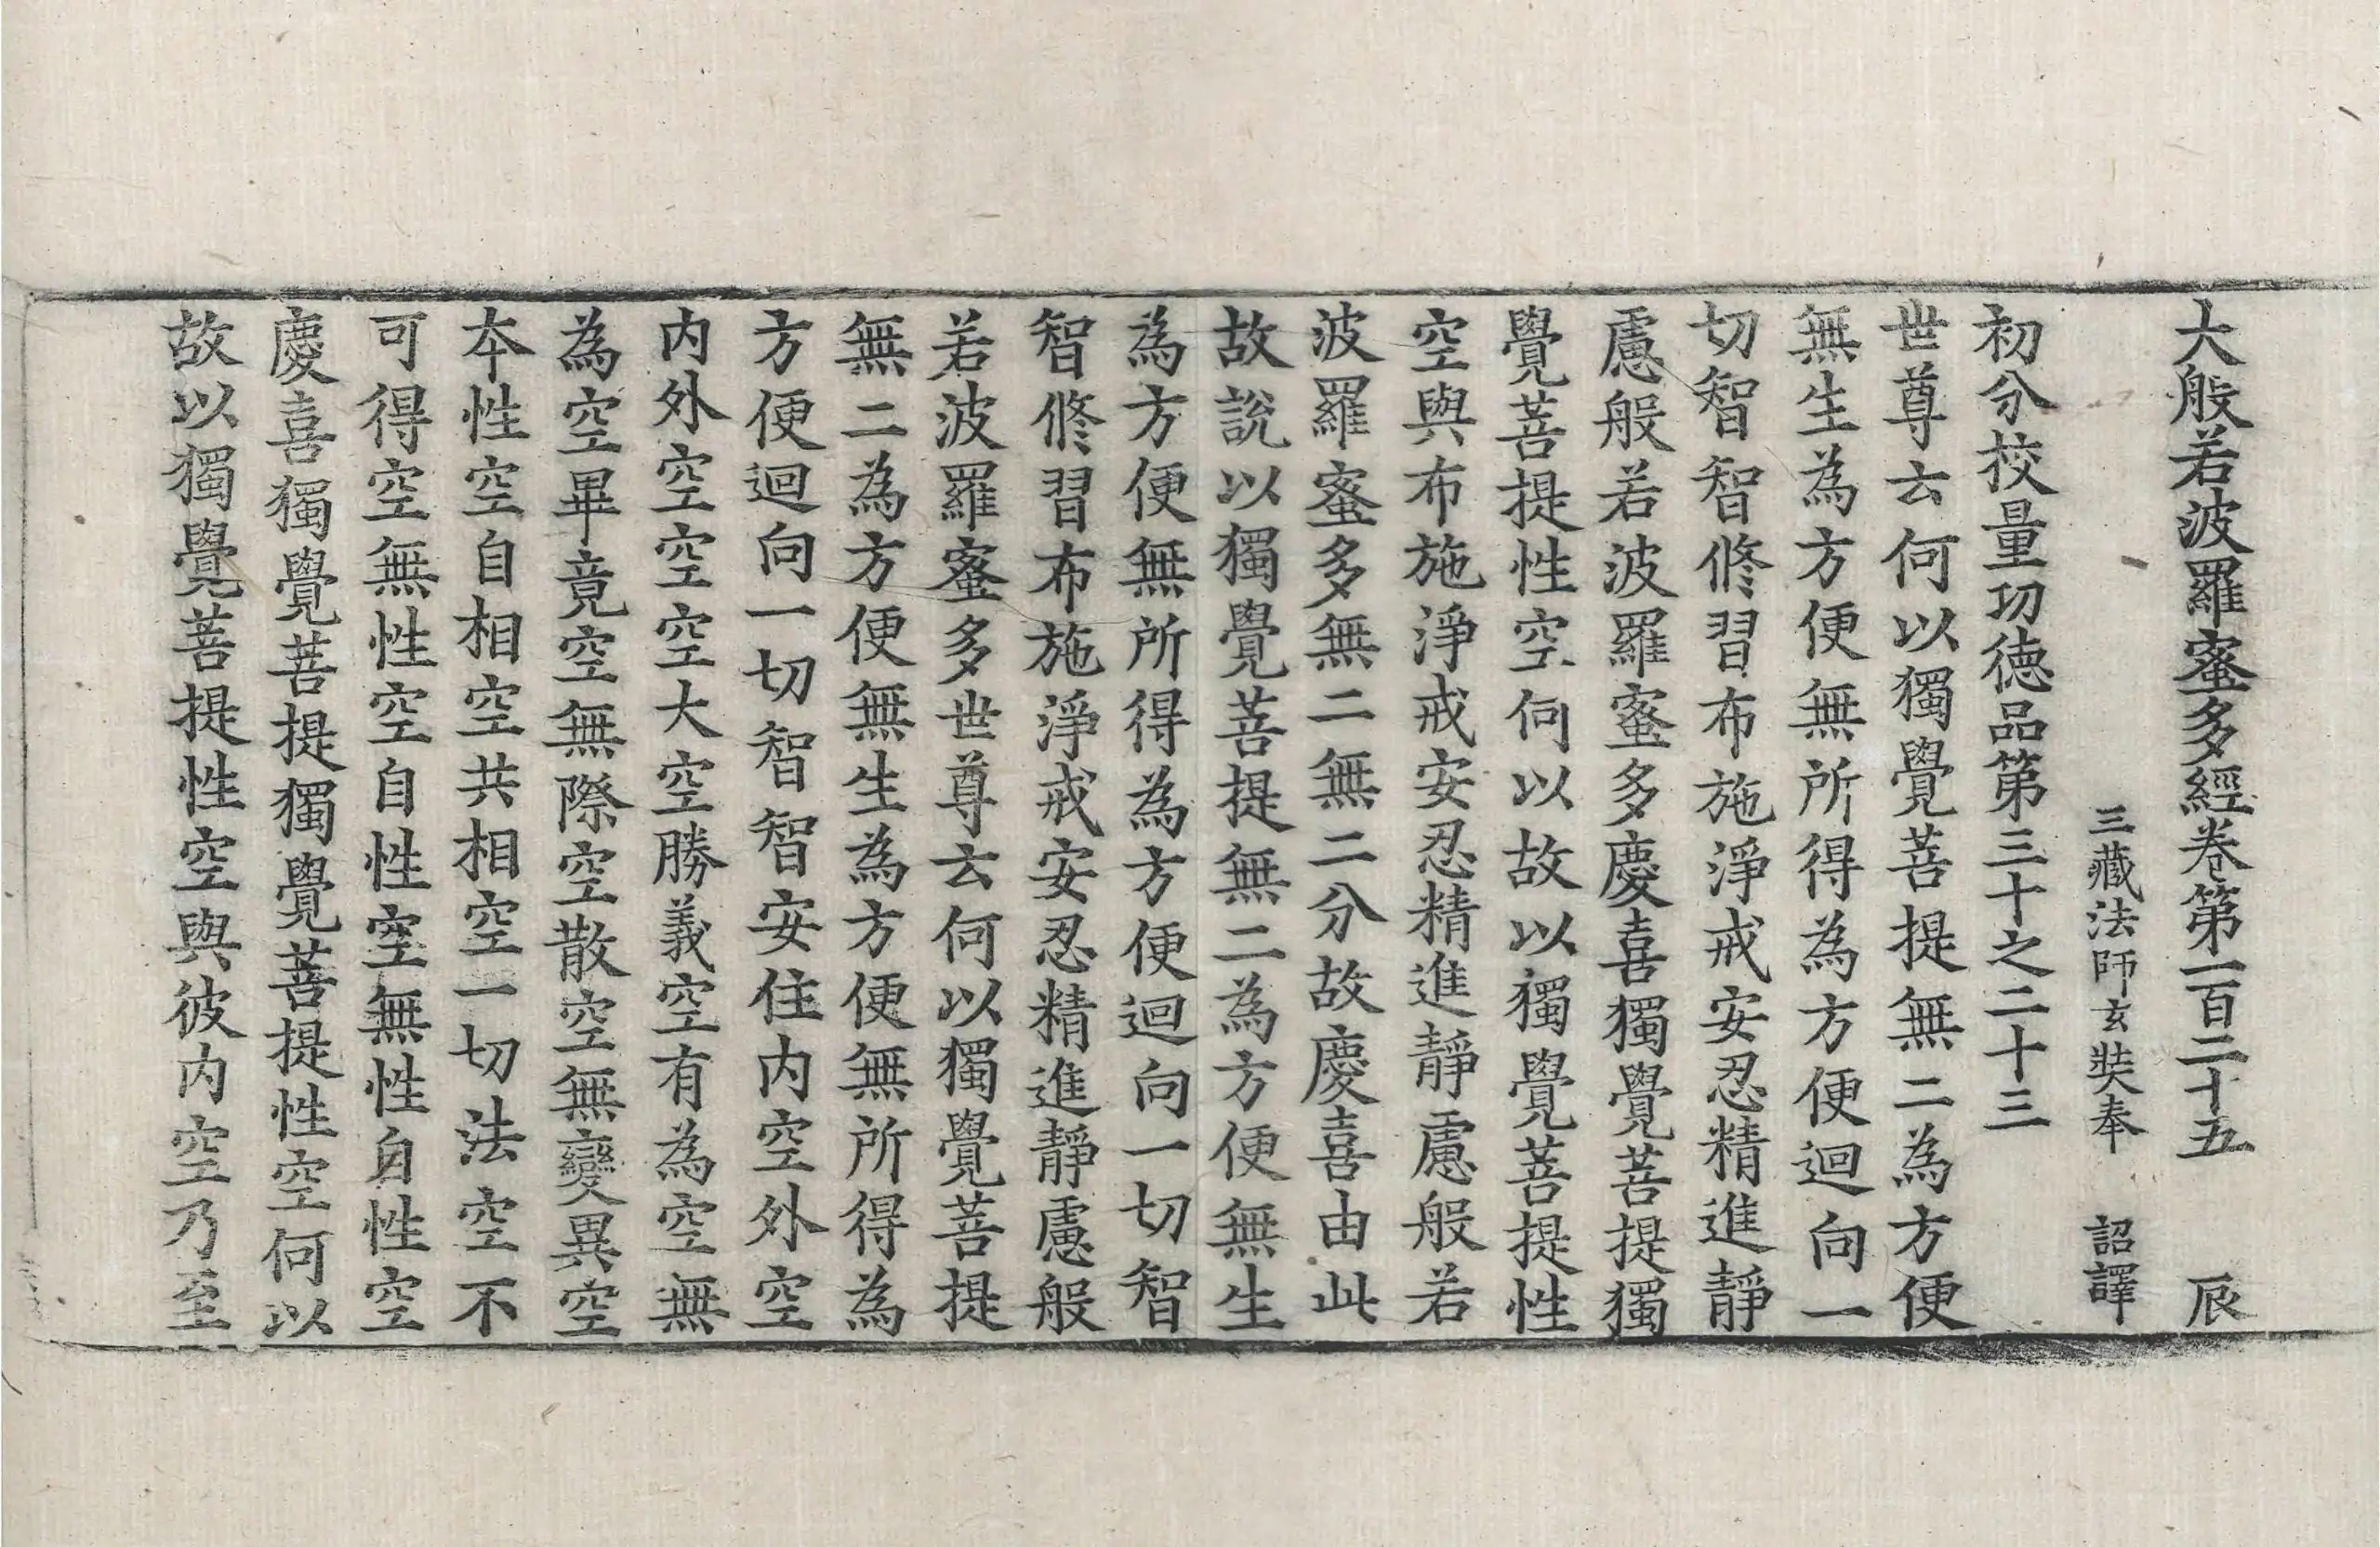 大般若波羅蜜多經卷第一百二十五 辰
三藏法師玄奘奉 詔譯
初分校量功德品第三十之二十三
世尊云何以獨覺菩提無二為方便
無生為方便無所得為方便迴向一
切智智修習布施淨戒安忍精進靜
慮般若波羅蜜多慶喜獨覺菩提獨
覺菩提性空何以故以獨覺菩提性
空與布施淨戒安忍精進靜慮般若
波羅蜜多無二無二分故慶喜由此
故說以獨覺菩提無二為方便無生
為方便無所得為方便迴向一切智
智修習布施淨戒安忍精進靜慮般
若波羅蜜多世尊云何以獨覺菩提
無二為方便無生為方便無所得為
方便迴向一切智智安住內空外空
內外空空空大空勝義空有為空無
為空畢竟空無際空散空無變異空
本性空自相空共相空一切法空不
可得空無性空自性空無性自性空
慶喜獨覺菩提獨覺菩提性空何以
故以獨覺菩提性空與彼內空乃至